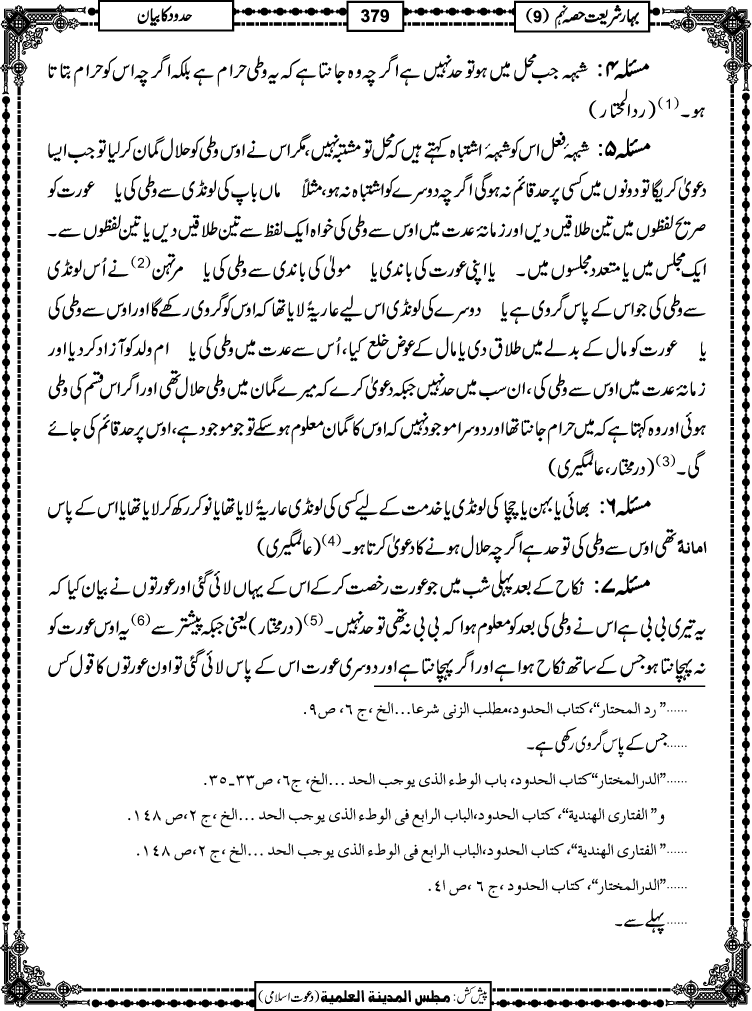 بہار شریعت حصہ نہم (9)
379
حدود کا بیان
مسئلہ ۴: شبہہ جب محل میں ہو تو حد نہیں ہے اگرچہ وہ جانتا ہے کہ یہ وطی حرام ہے بلکہ اگرچہ اس کو حرام بتاتا
ہو۔(1) (ردالمحتار)
مسئلہ ۵: شبہۂ فعل اس کو شبہۂ اشتباہ کہتے ہیں کہ محل تو مشتبہ نہیں، مگر اس نے اوس وطی کو حلال گمان کر لیا تو جب ایسا
دعویٰ کریگا تو دونوں میں کسی پر حد قائم نہ ہوگی اگرچہ دوسرے کو اشتباہ نہ ہو، مثلاً ماں باپ کی لونڈی سے وطی کی یا عورت کو
صریح لفظوں میں تین طلاقیں دیں اور زمانۂ عدت میں اوس سے وطی کی خواہ ایک لفظ سے تین طلاقیں دیں یا تین لفظوں سے۔
ایک مجلس میں یا متعدد مجلسوں میں۔ یا اپنی عورت کی باندی یا مولیٰ کی باندی سے وطی کی یا مرتہن(2) نے اُس لونڈی
سے وطی کی جو اس کے پاس گروی ہے یا دوسرے کی لونڈی اس لیے عاریۃً لایا تھا کہ اوس کو گروی رکھے گا اور اوس سے وطی کی
یا عورت کو مال کے بدلے میں طلاق دی یا مال کے عوض خلع کیا، اُس سے عدت میں وطی کی یا ام ولد کو آزاد کر دیا اور
زمانۂ عدت میں اوس سے وطی کی، ان سب میں حد نہیں جبکہ دعویٰ کرے کہ میرے گمان میں وطی حلال تھی اور اگر اس قسم کی وطی
ہوئی اور وہ کہتا ہے کہ میں حرام جانتا تھا اور دوسرا موجود نہیں کہ اوس کا گمان معلوم ہو سکے تو جو موجود ہے، اوس پر حد قائم کی جائے
گی۔(3) (درمختار، عالمگیری)
مسئلہ ۶: بھائی یا بہن یا چچا کی لونڈی یا خدمت کے لیے کسی کی لونڈی عاریۃً لایا تھا یا نوکر رکھ کر لایا تھا یا اس کے پاس
امانۃً تھی اوس سے وطی کی تو حد ہے اگرچہ حلال ہونے کا دعویٰ کرتا ہو۔(4) (عالمگیری)
مسئلہ ۷: نکاح کے بعد پہلی شب میں جو عورت رخصت کر کے اس کے یہاں لائی گئی اور عورتوں نے بیان کیا کہ
یہ تیری بی بی ہے اس نے وطی کی بعد کو معلوم ہوا کہ بی بی نہ تھی تو حد نہیں۔(5) (درمختار) یعنی جبکہ پیشتر سے(6) یہ اوس عورت کو
نہ پہچانتا ہو جس کے ساتھ نکاح ہوا ہے اور اگر پہچانتا ہے اور دوسری عورت اس کے پاس لائی گئی تو اون عورتوں کا قول کس
......"رد المحتار"، کتاب الحدود، مطلب الزنی شرعا...الخ، ج ۶، ص۹.
......جس کے پاس گروی رکھی ہے۔
......"الدرالمختار" کتاب الحدود، باب الوطء الذی یوجب الحد ...الخ، ج۶، ص۳۳۔۳۵.
و "الفتاری الھندیة"، کتاب الحدود، الباب الرابع فی الوطء الذی یوجب الحد ...الخ، ج ۲، ص ۱۴۸.
......"الفتاری الھندیة"، کتاب الحدود، الباب الرابع فی الوطء الذی یوجب الحد ...الخ، ج ۲، ص ۱۴۸.
......"الدرالمختار"، کتاب الحدود، ج ۶، ص ۴۱.
......پہلے سے۔
پیش کش: مجلس المدینة العلمیة (دعوت اسلامی)